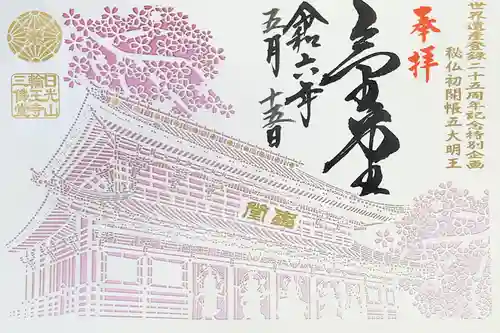 世界遺産登録二十五周年記念特別企画
秘仏初開帳五大明王
奉拝
令和六年
五月十五日
日光山
輪王寺
三佛堂